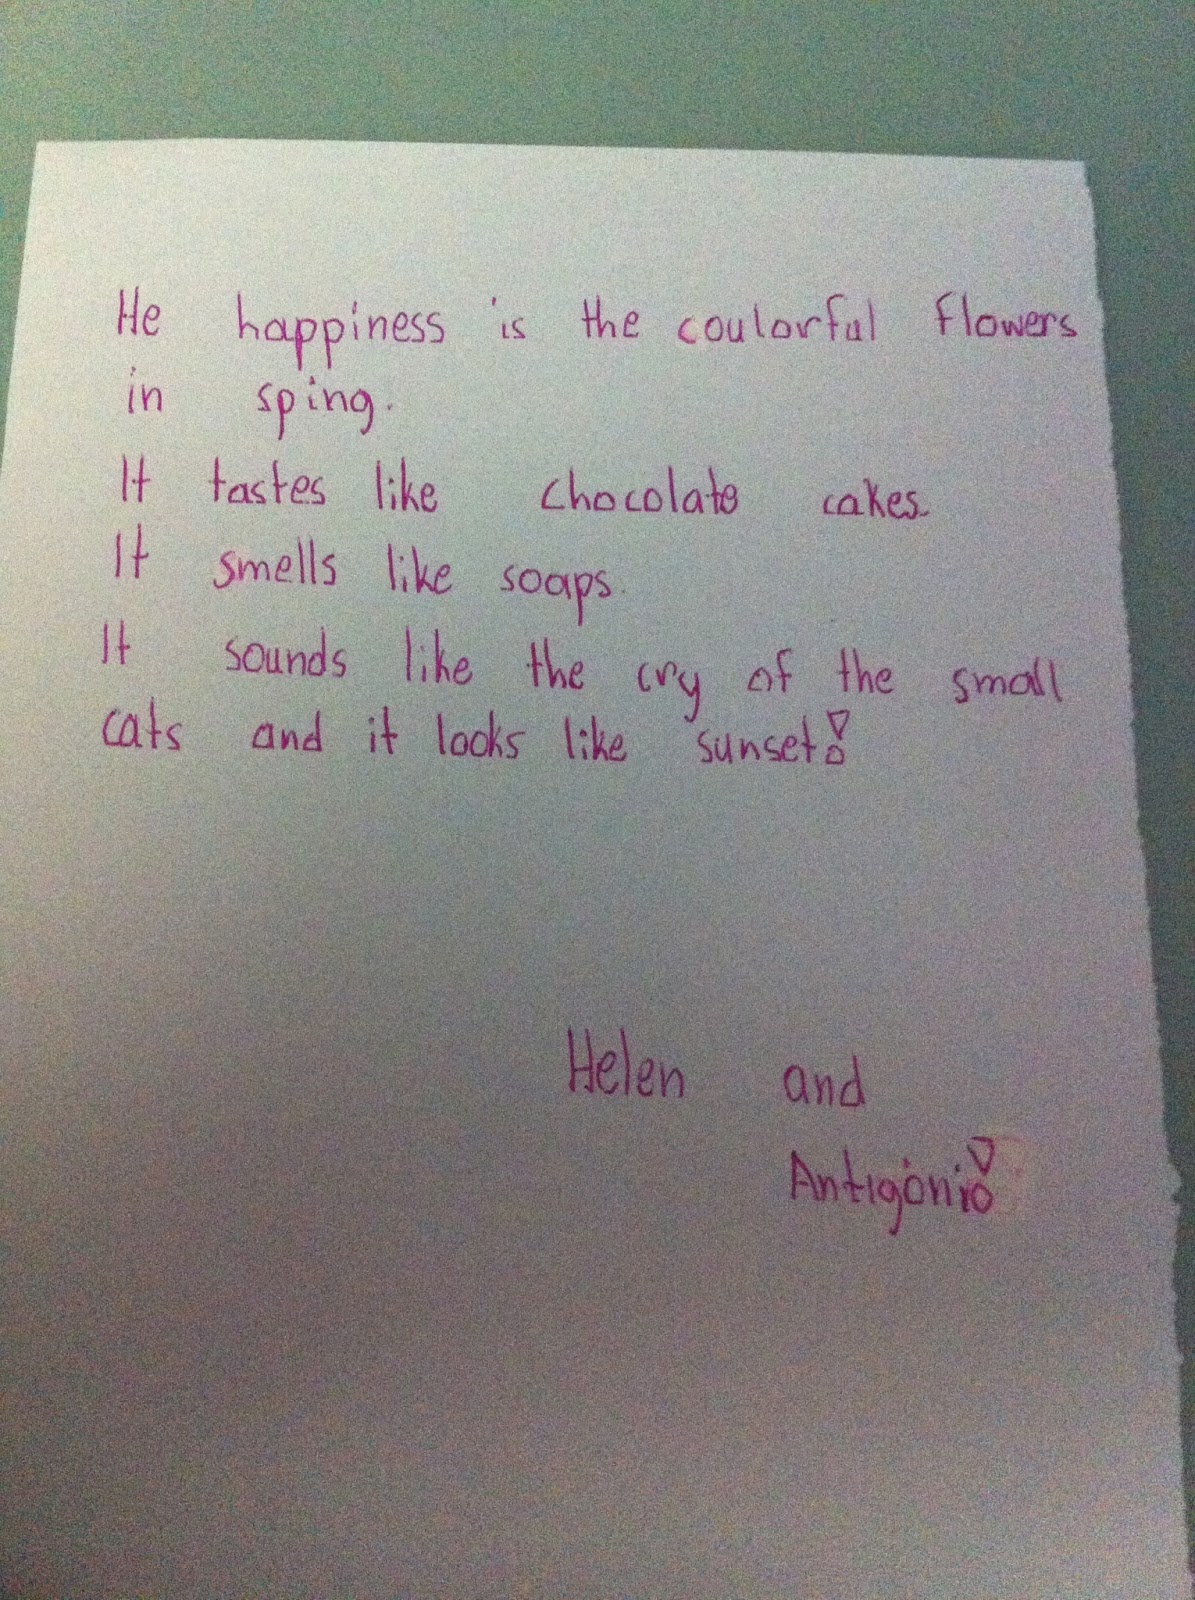 He happiness is the coulorful flowers
in sping.
It tastes like chocolate cakes.
It smells like soaps.
It sounds like the cry of the small
cats and it looks like sunset!
Helen and
Antigoni!